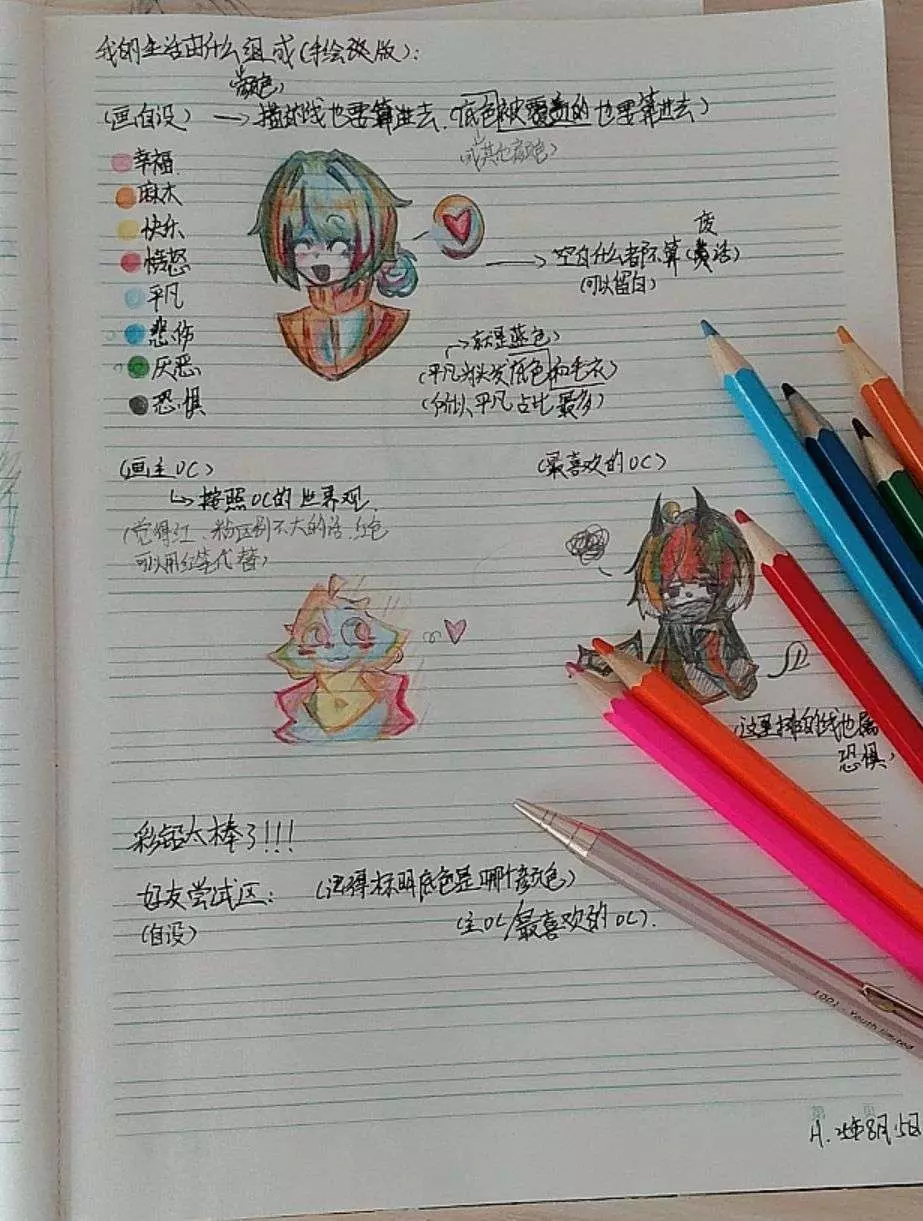 我的生活由什么组成(手绘改版):
(颜色)
(画自设) → 描的线也要算进去.(底色被覆盖的也要算进去)
(或其他颜色)
幸福
麻木
快乐
愤怒
平凡
悲伤
厌恶
恐惧
→ 空白什么都不算(废话)
(可以留白)
→就是蓝色)
(平凡为头发底色和毛衣)
(所以平凡占比最多)
(画主OC)
↳按照OC的世界观
(觉得红、粉区别不大的话.红色
可以用红笔代替)
(最喜欢的OC)
(这里描的线也属
恐惧)
彩铅太棒了!!!
好友尝试区: (记得标明底色是哪个颜色)
(自设)
(主OC/最喜欢的OC).
25年8月15日